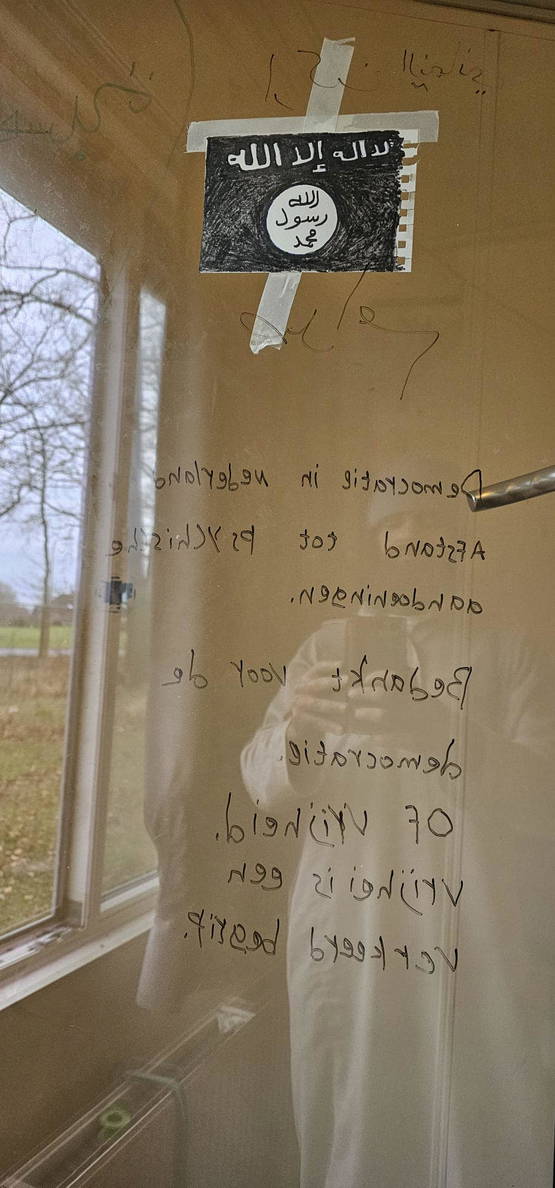 لا اله إلا الله
الله
رسول
محمد
Democratie in nederland
Afstand tot Psychische
aandoeningen.
Bedankt voor de
democratie.
OF vrijheid.
vrijhei is een
verkeerd begrip.